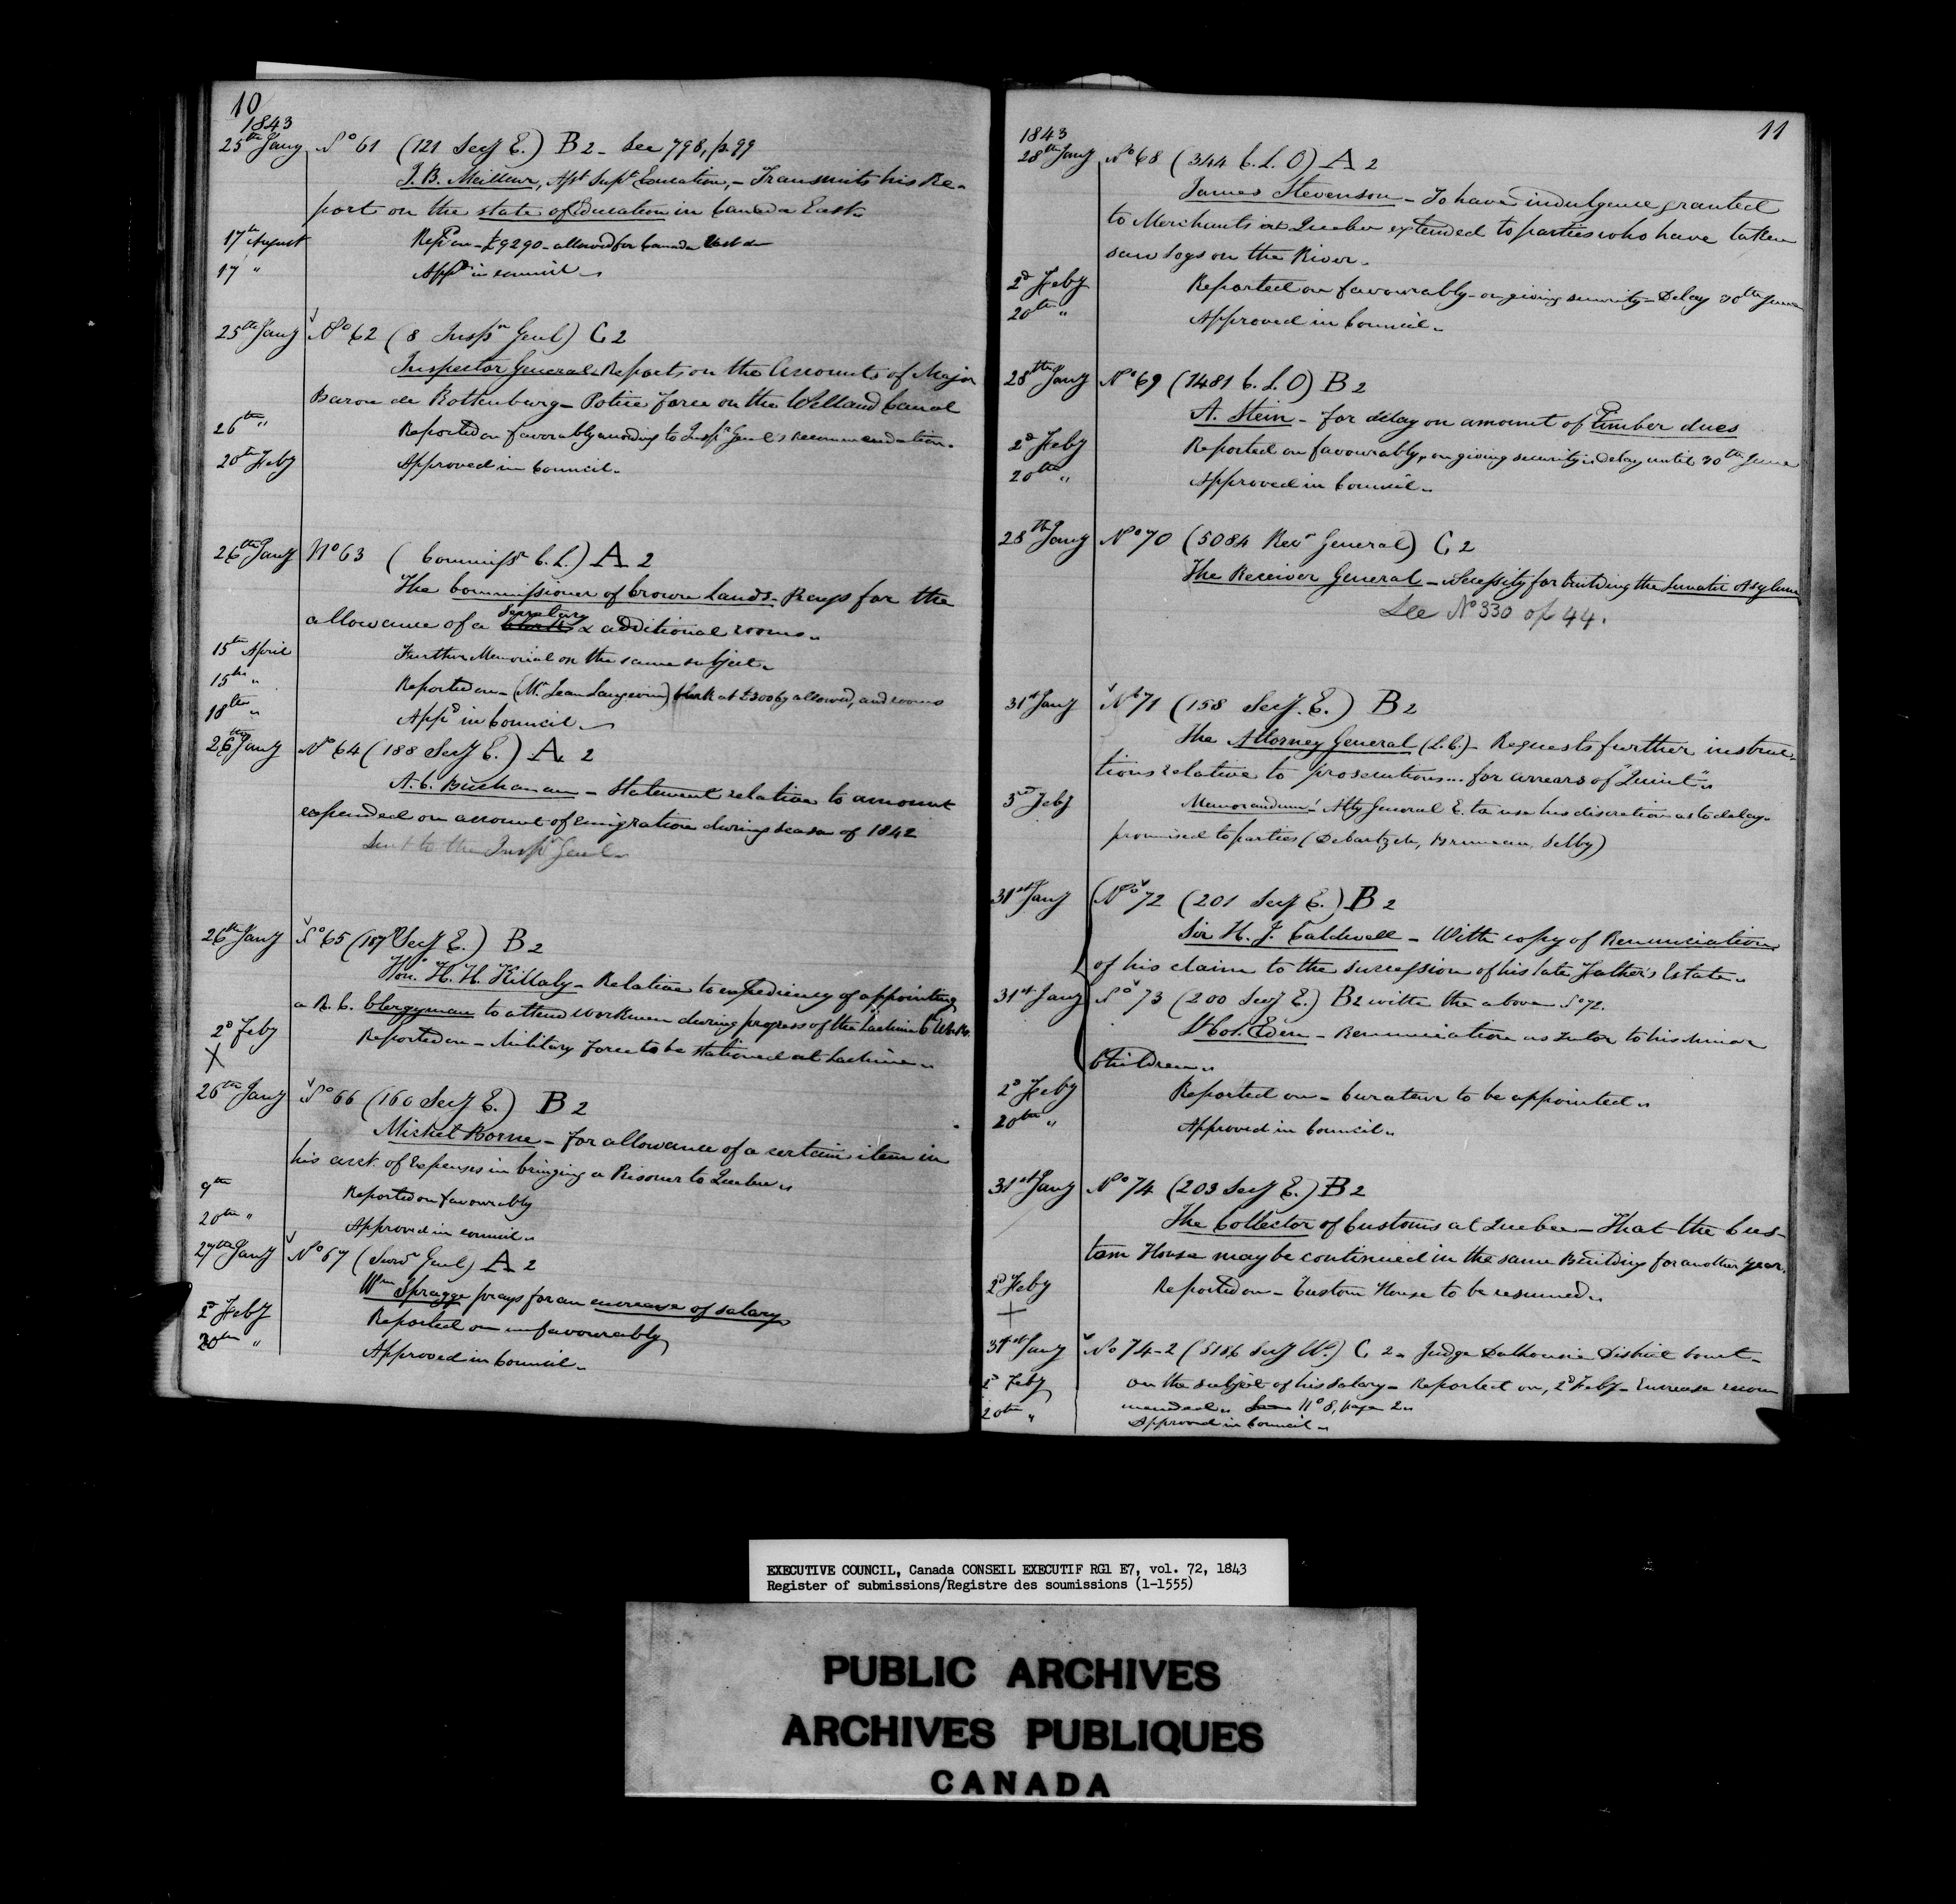 10
1843
25th Jany No 61 (121 Secy E.) B 2 - See 798, p. 99
J. B. Meilleur, Asst Supt Education, - Transmits his Re-
port on the state of Education in Canada East.
17th August Repd on - £9290 - allowed for Canada East
17 " Appd in council.
25th Jany No 62 (8 Inspr Genl) C 2
Inspector General Reports on the Accounts of Major
Baron de Rottenburg - Police force on the Welland Canal
26th " Reported on favorably according to Inspr Genl's recommendation.
20th Feby Approved in Council.
26th Jany No 63 ( Commissr C. L.) A 2
The Commissioner of Crown Lands - Prays for the
allowance of a Secretary & additional rooms.
15th April Further Memorial on the same subject.
15th " Reported on - (Mr Jean Langevin) Clerk at £200 Cy allowed, and rooms
18th " Appd in Council.
26th Jany No 64 (188 Secy E.) A 2
A. C. Buchanan - Statement relative to amount
expended on account of Emigration during season of 1842
Sent to the Inspr Genl.
26th Jany No 65 (187 Secy E.) B 2
Hon. H. H. Killaly - Relative to expediency of appointing
a R. C. Clergyman to attend workmen during progress of the Lachine Cl Works.
2d Feby Reported on - Military force to be stationed at Lachine.
X
26th Jany No 66 (160 Secy E.) B 2
Michel Borne - for allowance of a certain item in
his acct. of Expenses in bringing a Prisoner to Quebec.
9th Reported on favourably
20th " Approved in council.
27th Jany No 67 (Survr Genl) A 2
Wm Spragge prays for an encrease of salary
2d Feby Reported on unfavourably
20th " Approved in Council.
11
1843
28th Jany No 68 (344 C. L. O) A 2
James Stevenson - To have indulgence granted
to Merchants at Quebec extended to parties who have taken
saw logs on the River.
2d Feby Reported on favourably - on giving security - Delay 30th June
20th " Approved in Council.
28th Jany No 69 (1481 C. L. O) B 2
A. Stein - for delay on amount of Timber dues
2d Feby Reported on favourably, on giving security - delay until 30th June
20th " Approved in Council.
28th Jany No 70 (5084 Recr General) C 2
The Receiver General - Necessity for building the Lunatic Asylum
See No 330 of 44.
31st Jany No 71 (158 Secy. E.) B 2
The Attorney General (L. C.) - Requests further instruc-
tions relative to prosecutions... for arrears of "Quint".
3rd Feby Memorandum: Atty General E. to use his discretion as to delay
promised to parties (Debartzch, Bruneau, Selby)
31st Jany No 72 (201 Secy E.) B 2
Sir H. J. Caldwell - With copy of Renunciation
of his claim to the succession of his late Father's Estate.
31st Jany No 73 (200 Secy E.) B 2 with the above No 72.
Lt Col. Eden - Renunciation as Tutor to his Minor
Children.
2d Feby Reported on - Curateur to be appointed.
20th " Approved in Council.
31st Jany No 74 (203 Secy E.) B 2
The Collector of Customs at Quebec - That the Cus-
tom House may be continued in the same Building for another year.
2d Feby Reported on - Custom House to be resumed.
+
31st Jany No 74-2 (5186 Secy W.) C 2 - Judge Dalhousie District Court -
2d Feby on the subject of his salary - Reported on, 2d Feby - Encrease recom
mended. See No 8, page 2.
20th " Approved in Council.
EXECUTIVE COUNCIL, Canada CONSEIL EXECUTIF RG1 E7, vol. 72, 1843
Register of submissions/Registre des soumissions (1-1555)
PUBLIC ARCHIVES
ARCHIVES PUBLIQUES
CANADA